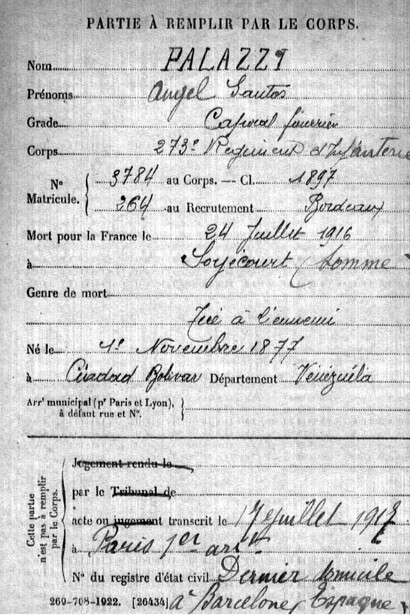 PARTIE À REMPLIR PAR LE CORPS.
Nom PALAZZI
Prénoms Angel Santos
Grade Caporal fourrier
Corps 273e Régiment d'Infanterie
No Matricule. 3784 au Corps. — Cl. 1897
264 au Recrutement Bordeaux
Mort pour la France le 24 Juillet 1916
à Soyécourt (Somme)
Genre de mort
Tué à l'ennemi
Né le 1er Novembre 1877
à Ciudad Bolivar Département Venézuéla
Arrt municipal (pr Paris et Lyon),
à défaut rue et No.
Cette partie
n'est pas à remplir
par le Corps.
Jugement rendu le
par le Tribunal de
acte ou jugement transcrit le 17 juillet
à Paris 1er arrt
No du registre d'état civil Dernier domicile
269-708-1922. [26434] à Barcelone, Espagne